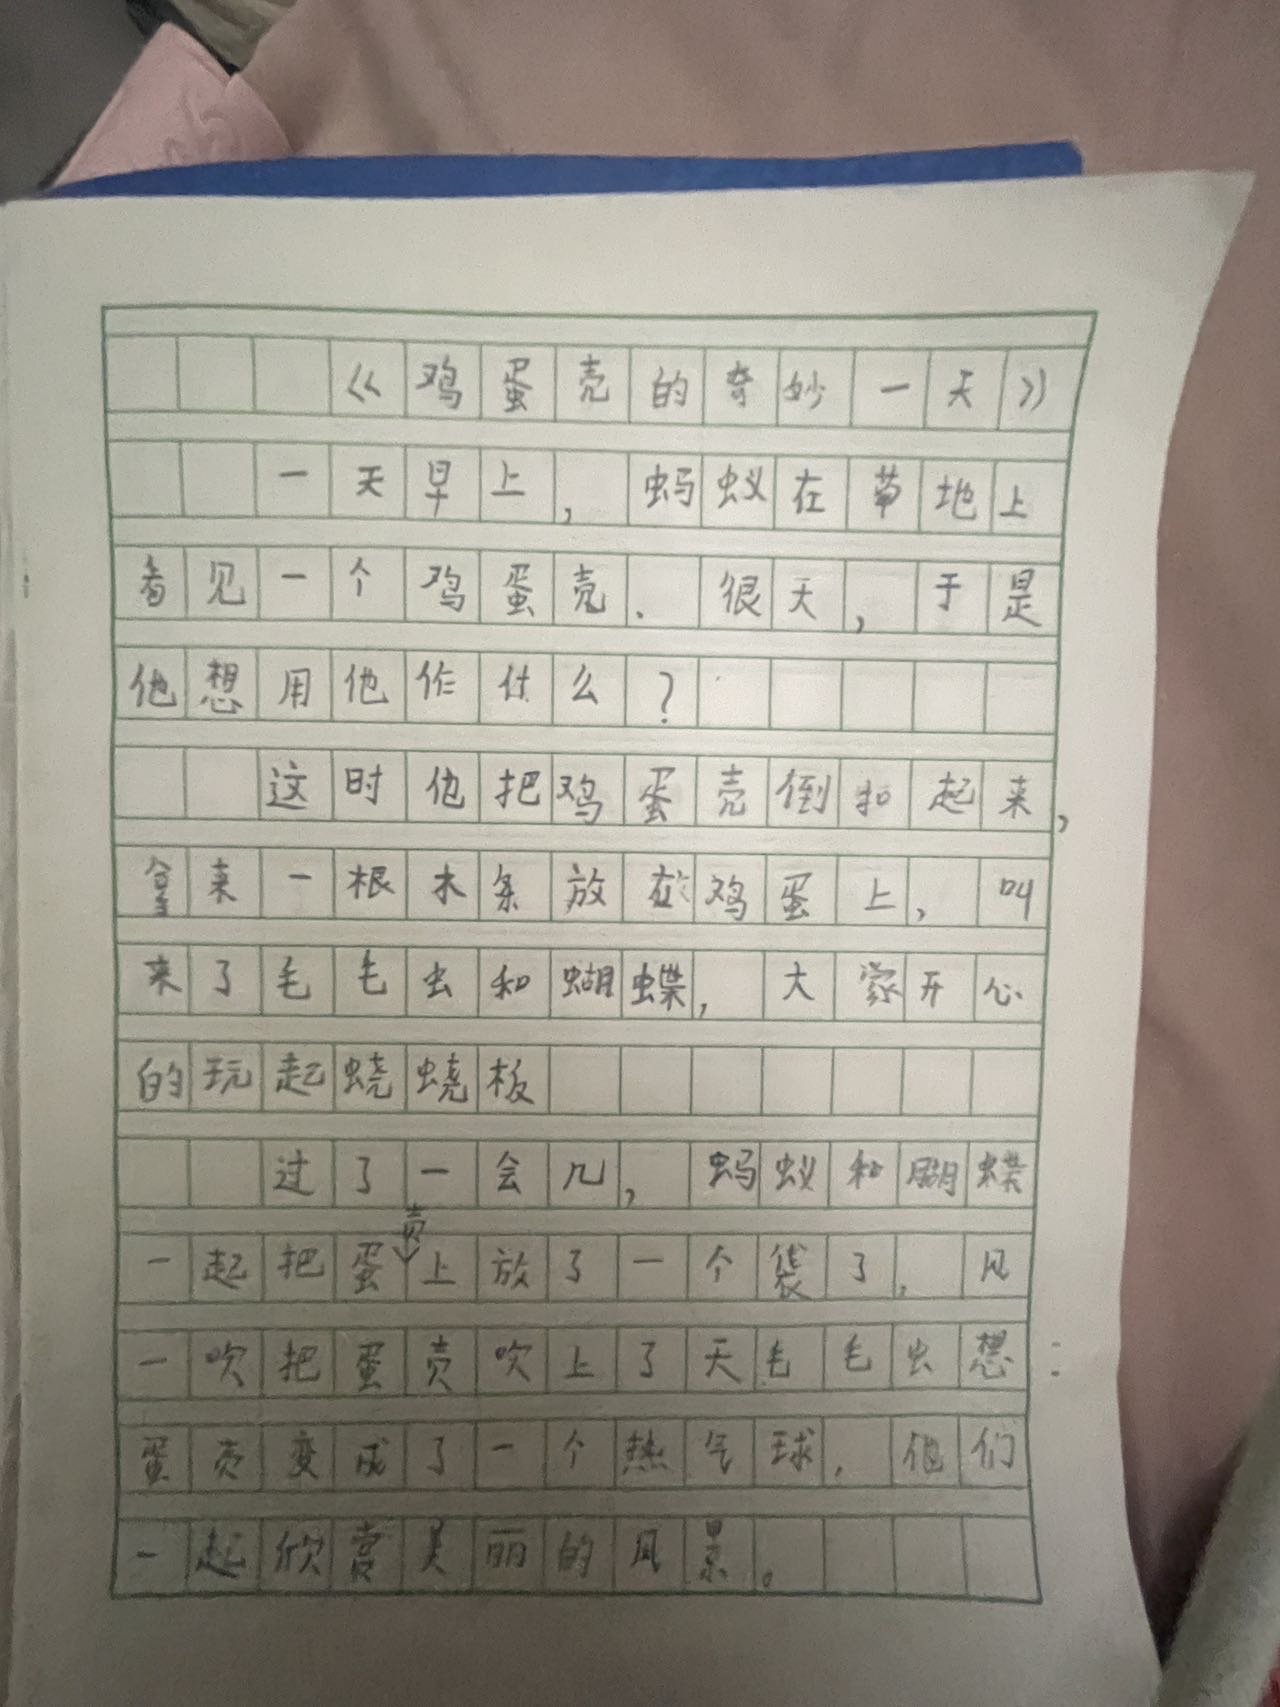 《鸡蛋壳的奇妙一天》
一天早上，蚂蚁在草地上
看见一个鸡蛋壳.很天，于是
他想用他作什么？
这时他把鸡蛋壳倒和起来，
拿来一根木条放在鸡蛋上，叫
来了毛毛虫和蝴蝶，大家开心
的玩起蛲蛲板
过了一会几，蚂蚁和蝴蝶
一起把蛋壳上放了一个袋了，风
一吹把蛋壳吹上了天毛毛虫想：
蛋壳变成了一个热气球，他们
一起欣赏美丽的风景。